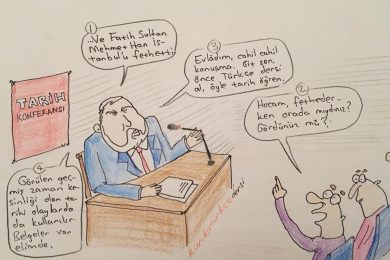 1
...Ve Fatih Sultan
Mehmet Han İs-
tanbul'u fethetti.
2
Hocam, fetheder-
ken orada mıydınız?
Gördünüz mü?
3
Evladım, cahil cahil
konuşma. Git sen
önce Türkçe dersi
al, öyle tarih öğren.
4
Görülen geç-
miş zaman ke-
sinliği olan ta-
rihi olaylarda
da kullanılır.
Belgeler var
elimde.
TARİH
KONFERANSI